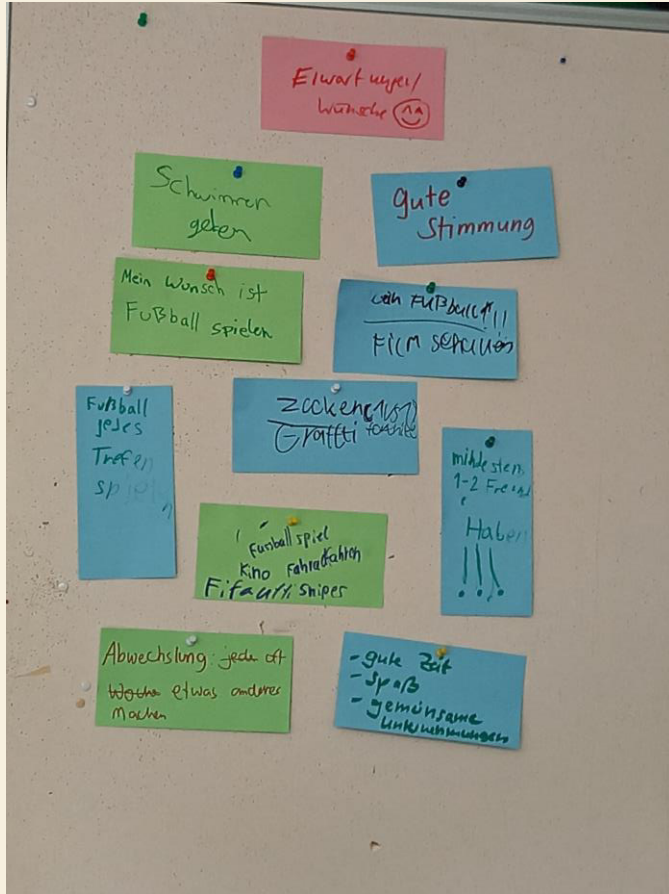 Erwartungen/
Wünsche
Schwimmen
gehen
gute
Stimmung
Mein Wunsch ist
Fußball spielen
Fußball!!!
Film schauen
Zocken (1vs1)
Graffti fortnite
Fußball
jedes
Trefen
spielen
mindestens
1-2 Freund
Haben
!!!
Fussballspiel
Kino Fahradfahren
Fifa
Snipes
Abwechslung: jede oft
Woche etwas anderes
Machen
- gute Zeit
- Spaß
- gemeinsame
Unternehmungen